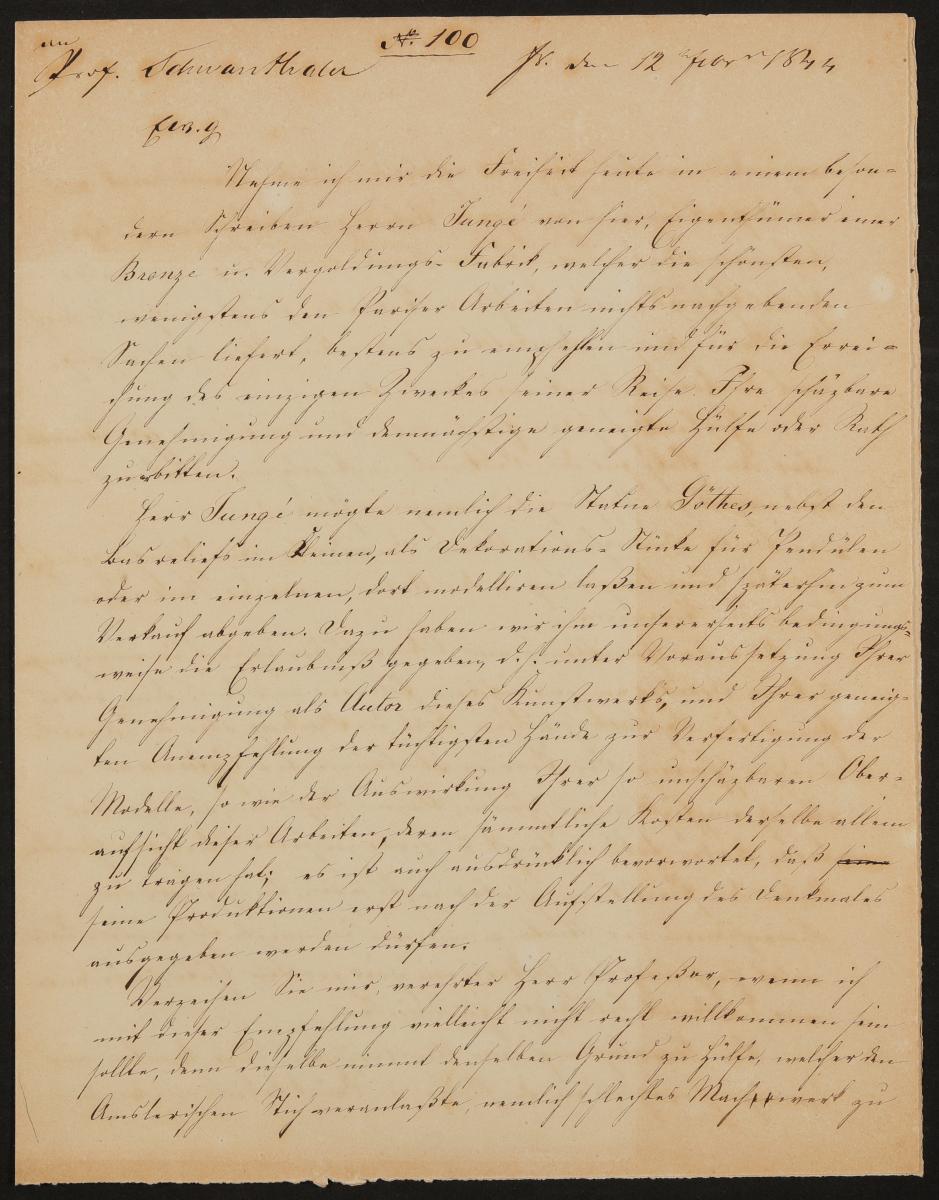 an
Prof. Schwanthaler
No. 100
Ff. den 12 Febr 1844
Ew. g
Nehme ich mir die Freiheit heute in einem beson=
dern Schreiben Herrn Jungé von hier, Eigenthümer einer
Bronze u. Vergoldungs= Fabrik, welcher die schönsten,
wenigstens den Pariser Arbeiten nichts nachgebenden
Sachen liefert, bestens zu empfehlen und für die Errei=
chung des einzigen Zweckes seiner Reise Ihre schäzbare
Genehmigung und demnächstige geneigte Hülfe oder Rath
zu erbitten.
Herr Jungé mögte nemlich die Statue Göthes, nebst den
Basreliefs im Kleinen, als Dekorations= Stücke für Pendülen
oder im einzelnen, dort modelliren laßen und späterhin zum
Verkauf abgeben. Dazu haben wir ihm unsererseits bedingungs=
weise die Erlaubniß gegeben, d. h. unter Voraussetzung Ihrer
Genehmigung als Autor dieses Kunstwerks, und Ihrer geneig=
ten Anempfehlung der tüchtigsten Hände zur Verfertigung der
Modelle, so wie der Auswirkung Ihrer so unschäzbaren Ober=
aufsicht dieser Arbeiten, deren sämmtliche Kosten derselbe allein
zu tragen hat; es ist auch ausdrücklich bevorwortet, daß seine
seine Produktionen erst nach der Aufstellung des Denkmales
ausgegeben werden dürfen.
Verzeihen Sie mir, verehrter Herr Profeßor, wenn ich
mit dieser Empfehlung vielleicht nicht recht willkommen sein
sollte, denn dieselbe nimmt denselben Grund zu Hülfe, welcher den
Amslerischen Stich veranlaßte, nemlich schlechtes Machwerk zu